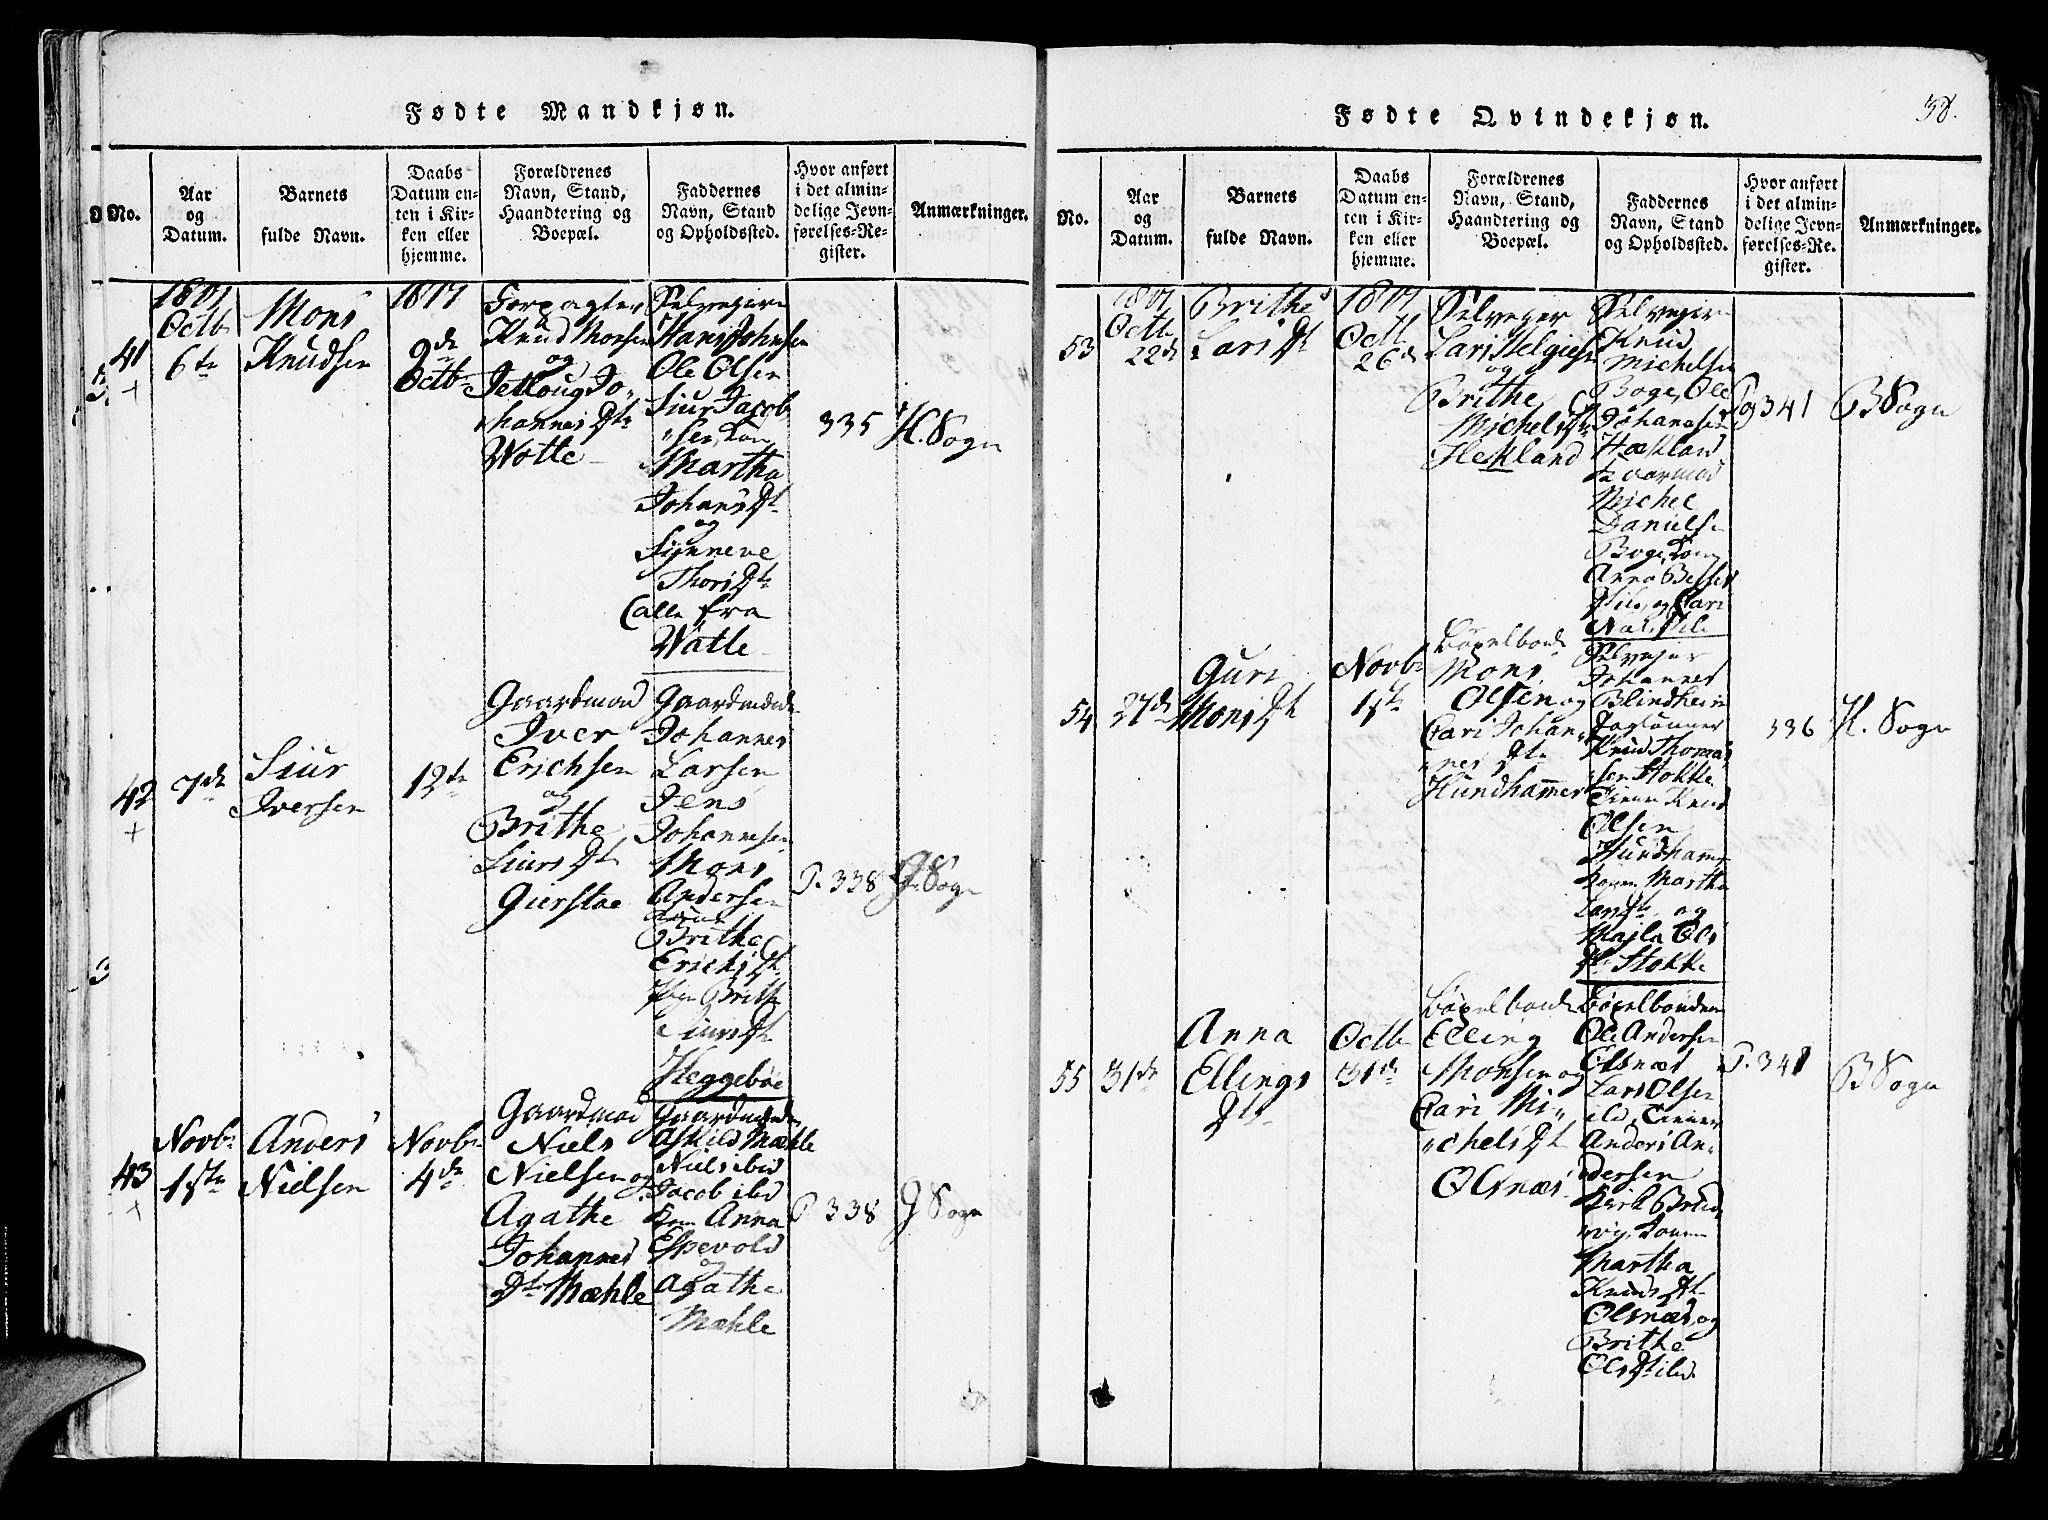 Fødte Mandkjøn.
No.
Aar
og
Datum.
Barnets
fulde Navn.
Daabs
Datum en-
ten i Kir-
ken eller
hjemme.
Forældrenes
Navn, Stand,
Haandtering og
Boepæl.
Faddernes
Navn, Stand
og Opholdssted.
Hvor anført
i det almin-
delige Jevn-
førelses-Re-
gister.
Anmærkninger.
41
+
Octb
6te
Mons
Knudsen
1817
9de
Octb
Forpagter
Knud Monsen
og
Jo-
hannes Dtr
Wotle
Selveyere
Hans Johnsen
Ole Olsen
Siur Jacob
sen, Kon
Martha
Johans Dt
og
Synneve
Thors Dtr
alle fra
Watle
335
H. Sogn
42
+
7de
Siur
Iversen
12te
Gaardmand
Iver
Erichsen
og
Brithe
Siurs Dt
Gierstae
Johannes
Larsen
Jens
Johannesen
Mons
Andersen
Brithe
Erichs Dt
Pige Brithe
Siurs Dt
Heggebøe
P. 338
G. Sogn
43
+
Novb
1ste
Anders
Nielsen
Novb
4de
Gaardmand
Niels
Nielsen og
Agathe
Johannes
Dtr Mæhle
Askild Mæhle
Niels ibid
Jacob ibid
Anna
Espevold
og
Agathe
Mæhle
P 338
G Sogn
Fødte Qvindekjøn.
38.
No.
Aar
og
Datum.
Barnets
fulde Navn.
Daabs
Datum en-
ten i Kir-
ken eller
hjemme.
Forældrenes
Navn, Stand,
Haandtering og
Boepæl.
Faddernes
Navn, Stand
og Opholdssted.
Hvor anført
i det almin-
delige Jevn-
førelses-Re-
gister.
Anmærkninger.
53
Octb
22de
Brithe
Lars Dt
Octb
26de
Selveyer
Lars Helgiesen
og
Brithe
Michels Dtr
Hekland
Selveyere
Knud
Michelsen
Boge, Ole
Johanesen
Hækland
Michel
Danielsen
Boge, Kone
Anna
og Cari
341
B Sogn
54
27de
Guri
Mons Dt
Novb
1ste
Mons
Olsen og
Cari Johan
nes Dtr
Hundhammer
Selveyer
Johannes
Blindheim
Knud Thomas
sen Stokke
Knud
Olsen
Hundhammer
Martha
Lars Dtr og
Ols
Dtr Stokke
336
H. Sogn
55
31de
Anna
Ellings
Dtr
Octb
31de
Elling
Monsen og
Cari Mi-
chels Dt
Olsnæs
Ole Andersen
Olsnæs
Lars Olsen
ibd
Anders An-
dersen
Martha
Knuds Dt
Olsnæs, og
Brithe
Ols Dt ibd.
P. 341
B Sogn